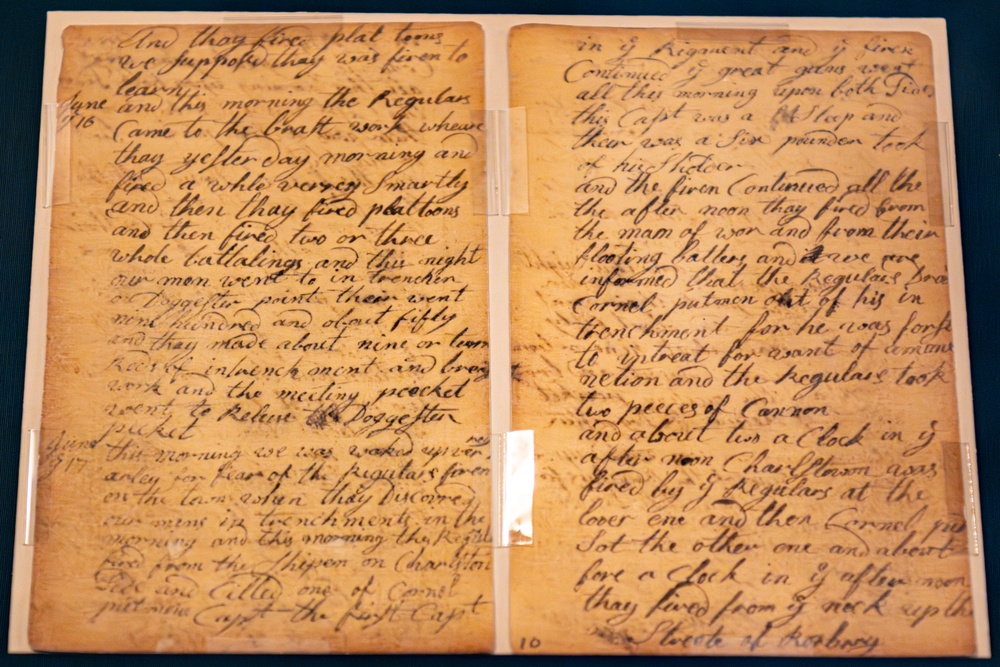 And thay fired plat toons
we supposd thay was firen to
learn
June and this morning the Regulars
16 Came to the brast work wheare
thay yesterday morning and
fired a while verrey Smartly
and then thay fired plattoons
and then fired two or three
whole battalings and this night
our men went to in trencher
o Doggester point their went
nine hundred and about fifty
and thay made about nine or
Rods of intrenchment and brest
work and the meeting peecket
went to Releve Doggester
pecket
June this morning we was waked up ver
17 arley for fear of the Regulars firen
on the town when thay Discovred
our mens in trenchments in the
morning and this morning the Regul
fired from the Shipen on Charlston
Side and Cilled one of Cornel
putmens Capt the first Capt
in ye Rigment and ye firen
Continued ye great guns went
all this morning upon both Sides
this Capt was a Sleep and
their was a Six pounder took
of his Sholder
and the firen Continued all the
the after noon thay fired from
the mam of wor and from their
floting batters and we are
informed that the Regulars Drove
Cornel putmen out of his in
trenchment for he was forst
to yntreat for want of amone
netion and the Regulars took
two peeces of Cannon
and about two a Clock in ye
after noon Charlstown was
fired by ye Regulars at the
lower ene and then Cornel put
Sot the other one and about
fore a Clock in ye after noon
thay fired from ye neck up the
Streete of Roxbury
10